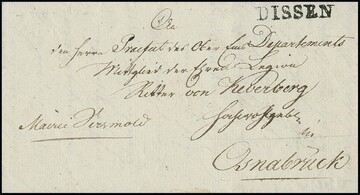 DISSEN
An
den Herrn Praefect des Ober Ems Departements
Mitglied der Ehren Legion
Ritter von Keverberg
Hochwohlgeb.
in
Mairie Versmold
Osnabrück